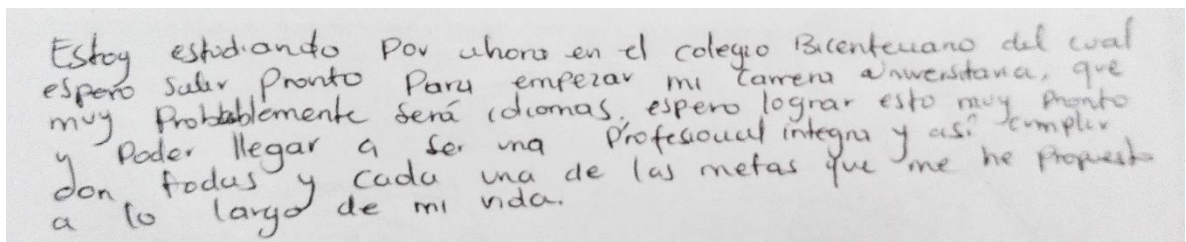 Estoy estudiando por ahora en el colegio Bicentenario del cual
espero salir pronto para empezar mi carrera universitaria, que
muy probablemente será idiomas, espero lograr esto muy pronto
y poder llegar a ser una profesional integra y así cumplir
don todas y cada una de las metas que me he propuesto
a lo largo de mi vida.